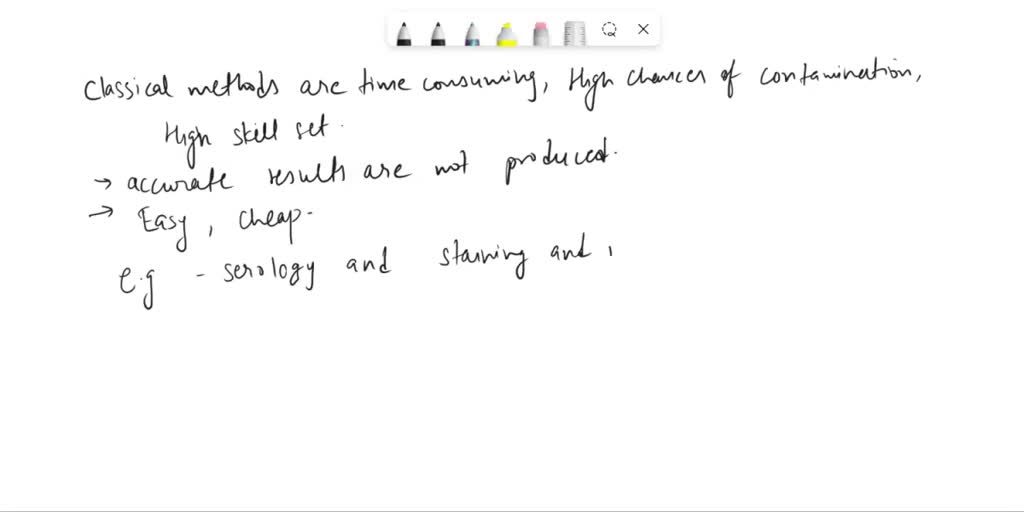 Classical methods are time consuming, High chances of contamination,
High skill set.
→ accurate results are not produced.
→ Easy, cheap.
e.g - serology and staining and